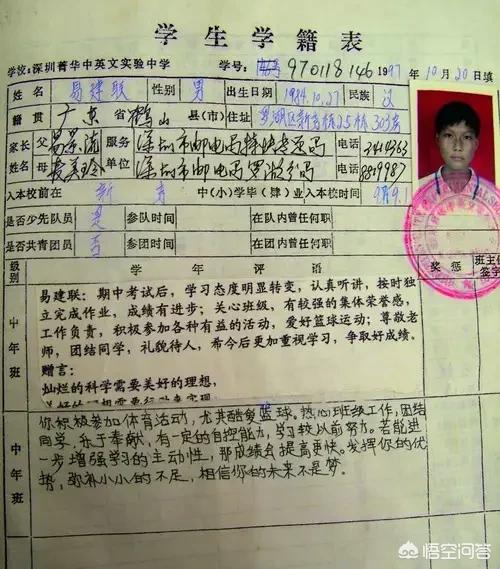 学生学籍表
学校:深圳菁华中英文实验中学 学号: 970118146 1997年10月20日填
姓名 易建联 性别 男 出生日期 1984.10.27 民族 汉
籍贯 广东省鹤山县(市) 住址
家长姓名 父 易景流 服务单位 深圳市邮电局 电话
母 麦美玲 深圳市邮电局罗湖分局 电话
入本校前在 新秀 中(小)学毕(肆)业 入本校时间 97.9.1
是否少先队员 是 参队时间 在队内曾任何职
是否共青团员 否 参团时间 在团内曾任何职
级别 学年评语 奖惩 班主任签字
中年班
易建联:期中考试后,学习态度明显转变,认真听讲,按时独
立完成作业,成绩有进步;关心班级,有较强的集体荣誉感,
工作负责,积极参加各种有益的活动,爱好篮球运动;尊敬老
师,团结同学,礼貌待人,希今后更加重视学习,争取好成绩。
赠言:
灿烂的科学需要美好的理想,
中年班
你积极参加体育活动,尤其酷爱篮球。热心班级工作,团结
同学,乐于奉献,有一定的自控能力,学习较以前努力。若能进
一步增强学习的主动性,那成绩会提高更快。发挥你的优
势,弥补小小的不足,相信你的未来不是梦。
悟空问答